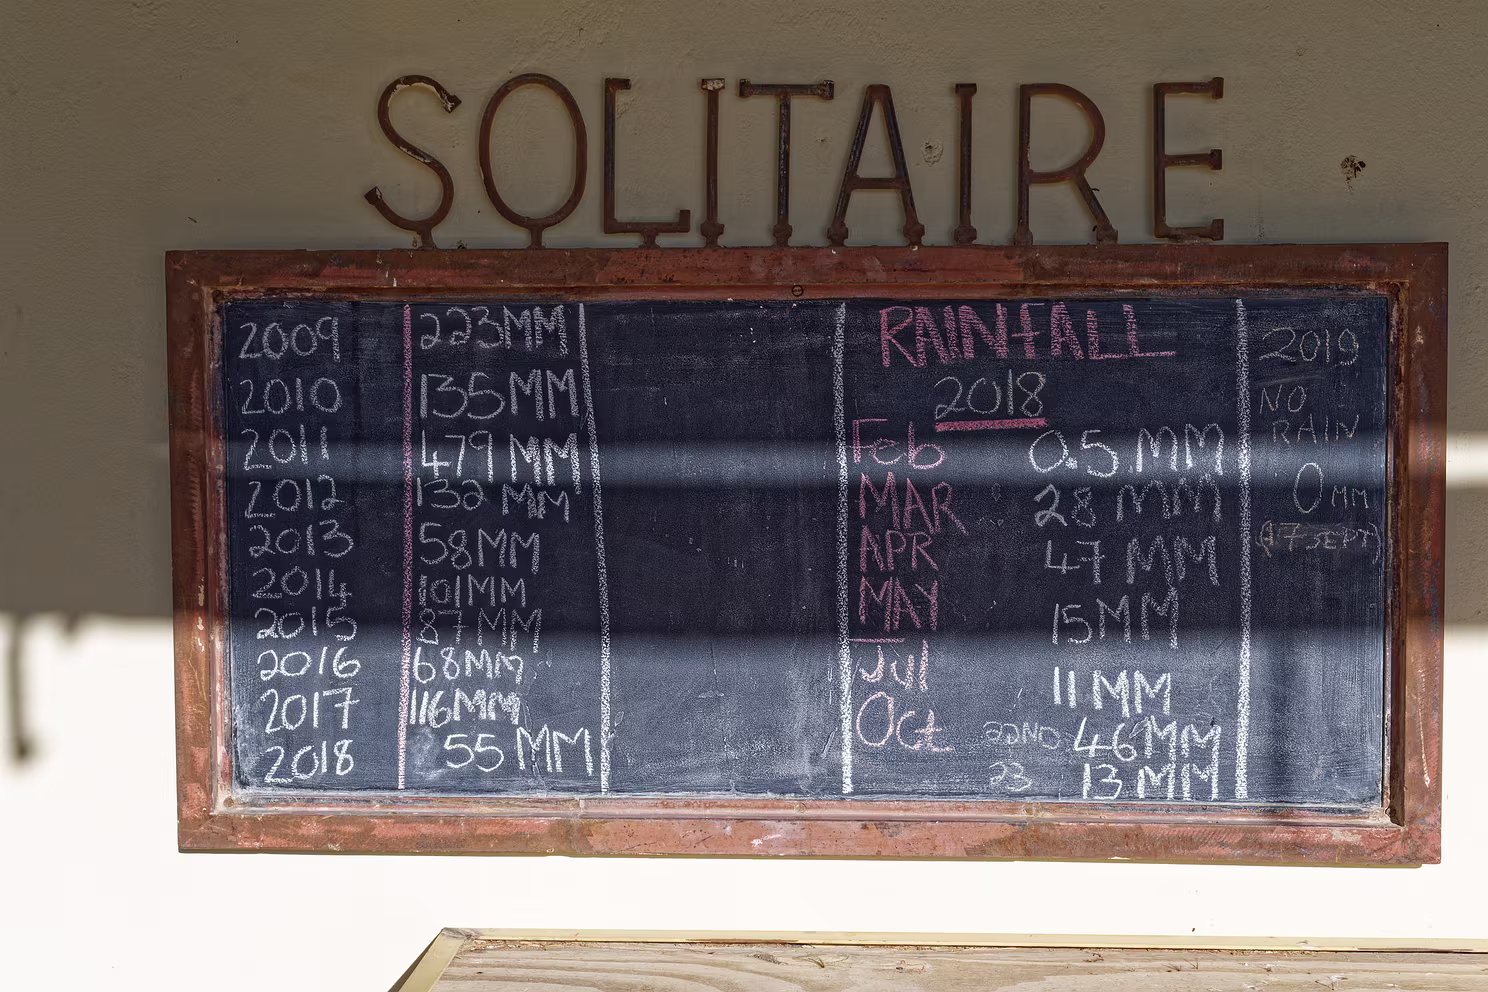 SOLITAIRE
2009 223MM
2010 135MM
2011 479MM
2012 132MM
2013 58MM
2014 101MM
2015 87MM
2016 68MM
2017 116MM
2018 55MM
RAINFALL
2018
Feb 0.5MM
MAR 28MM
APR 47MM
MAY 15MM
Jul 11MM
Oct 22ND 46MM
23 13MM
2019
NO
RAIN
0MM
(17 SEPT)